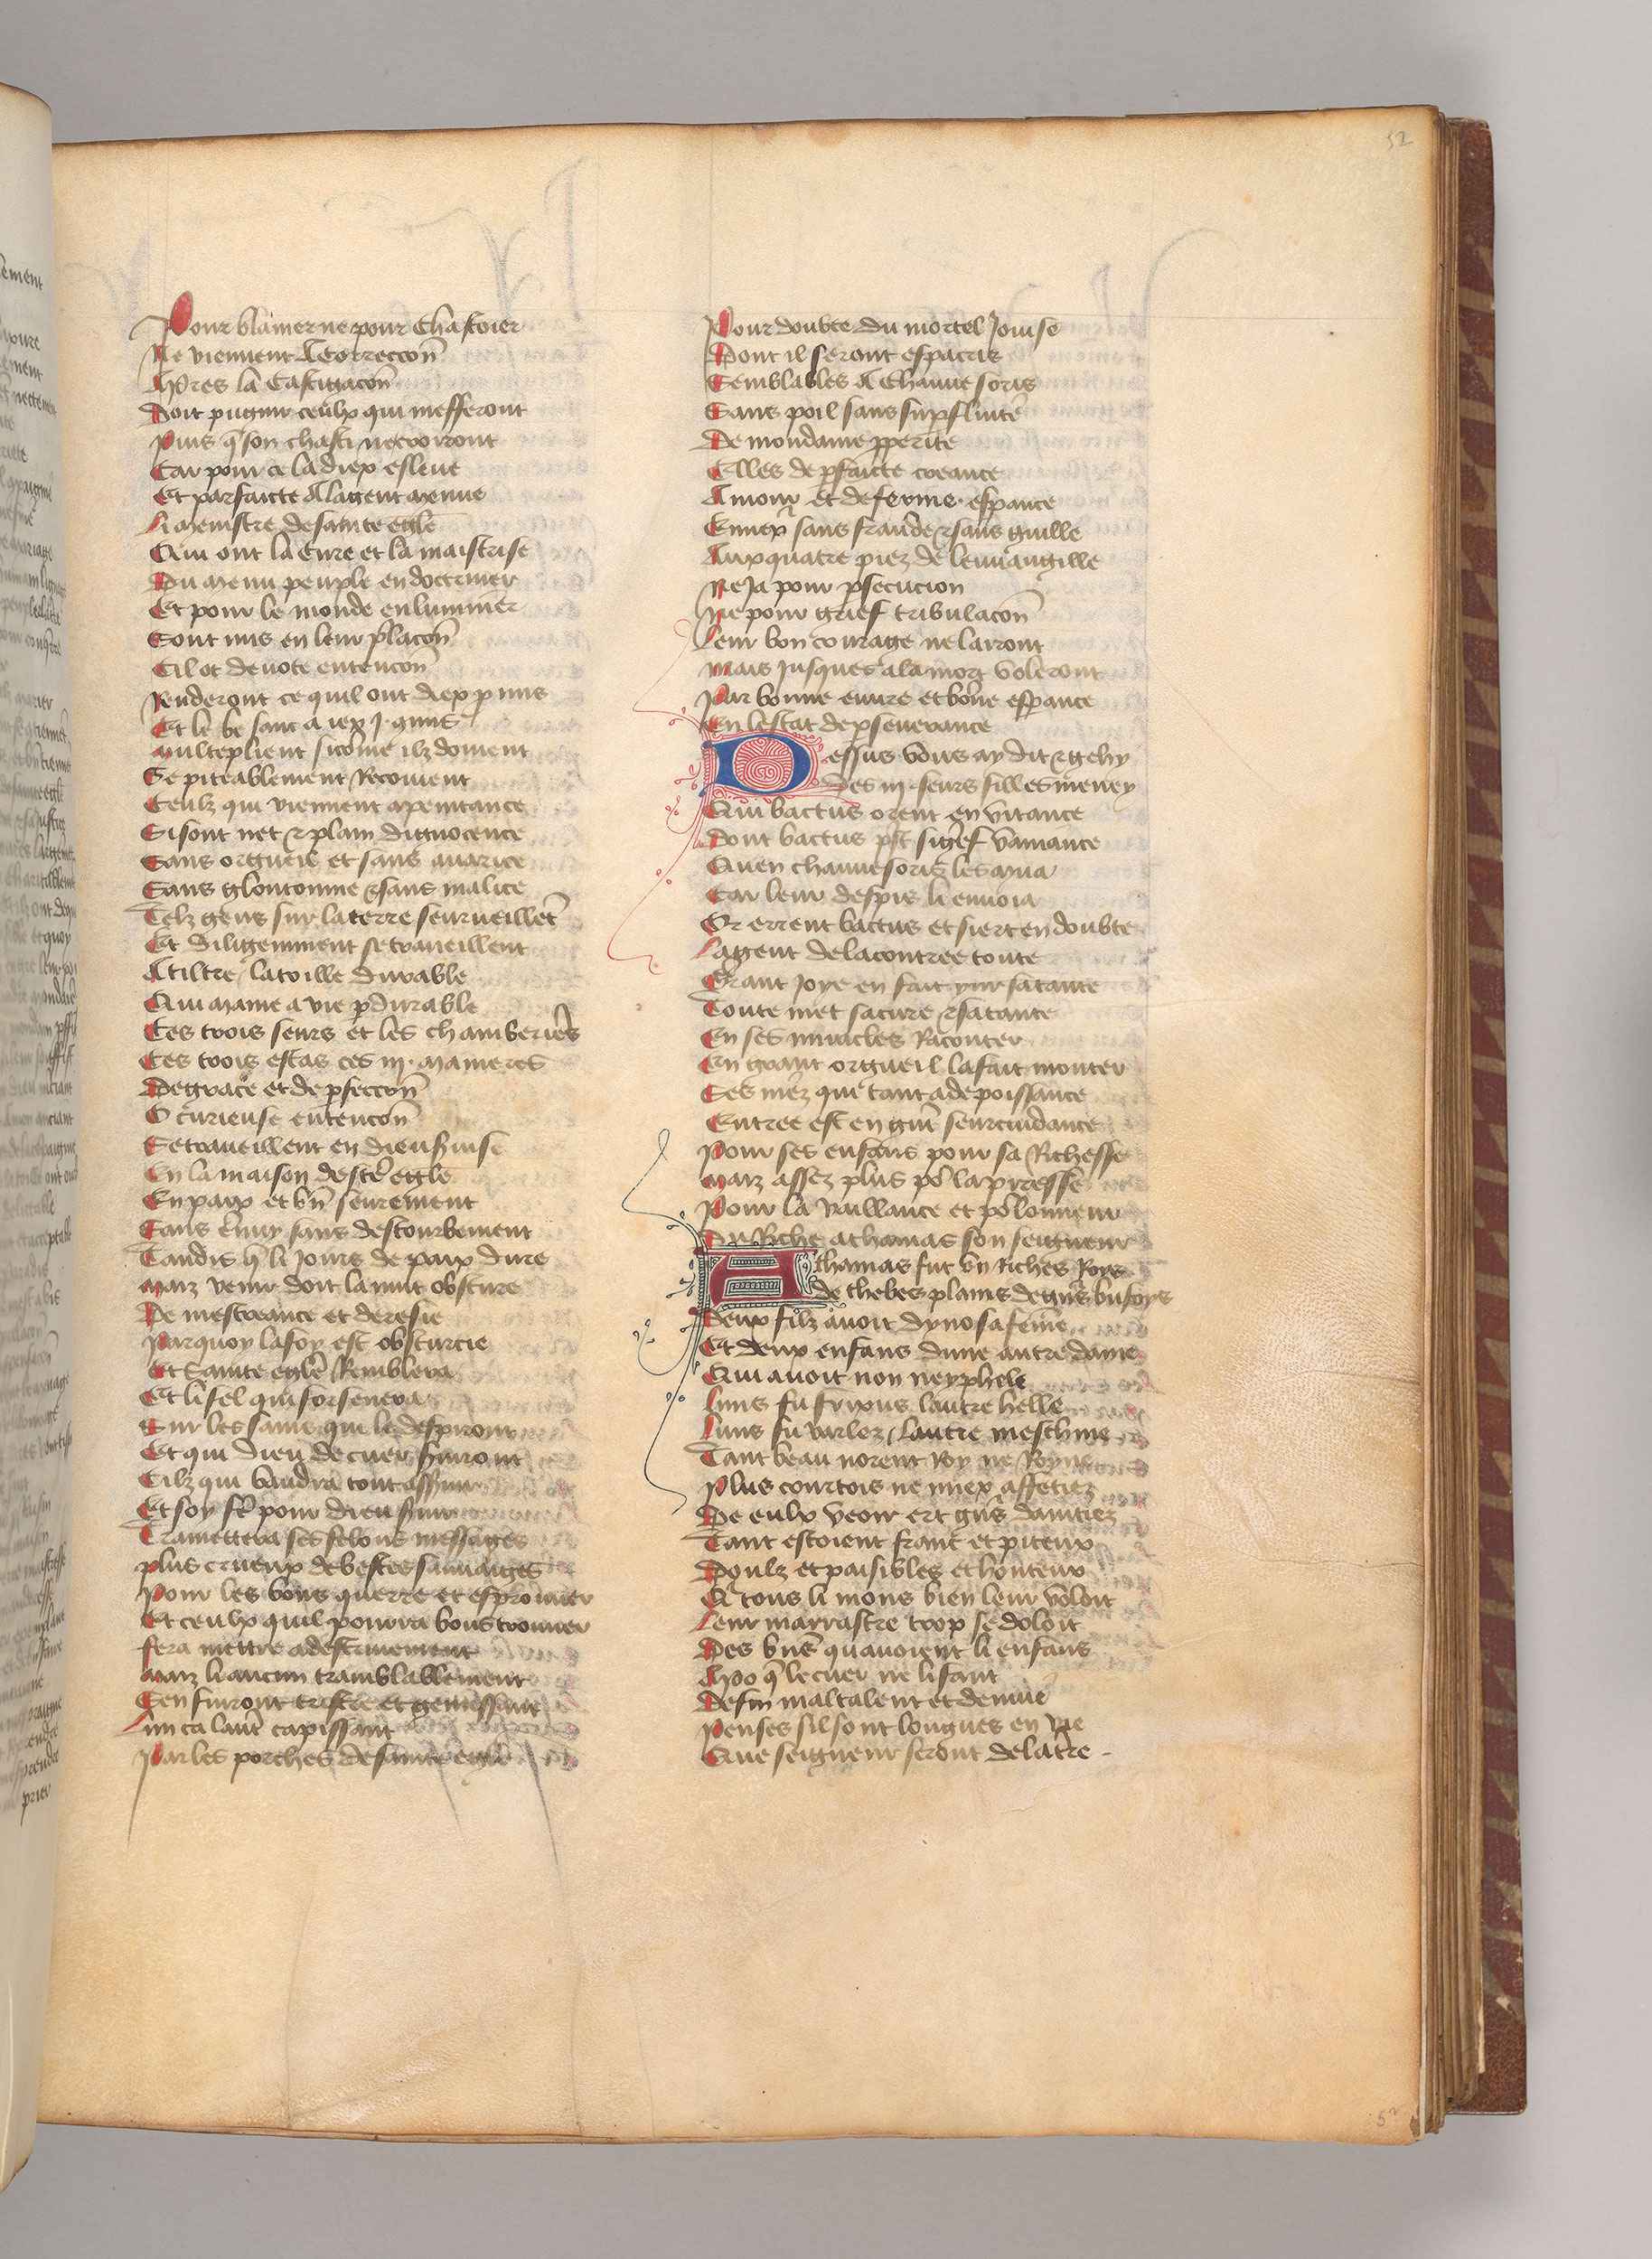 52
Pour blamer ne pour Chastoier
Ne viennent A Correccon
Apres la Castigacon
Doit pugnir ceulx qui mefferont
Puis q̄ son chasti ne croiront
Car pour ce la diex esleue
Et parfaicte A la gent menue
Li menistre de sainte eglē
Qui ont la Cure et la maistrise
Du menu peuple endoctriner
Et pour le monde enluminer
Sont mis en leur placon
Cil ot deuote entencon
Renderont ce quil ont diex pmis
Et le be sanc a iex
Multeplient sicome ilz doiuent
Se piteablement Recoiuent
Ceulz qui viennent a penitance
Si sont net & plain dignocence
Sans orgueil et sans auarice
Sans gloutonnie & sans malice
Telz gens sur la terre seurueillēt
Et Diligemment se traueillent
A tiltre la toille durable
Qui maine a vie pdurable
Ces trois seurs et les chamberieres
Ces trois estas ces iij. manieres
De grace et de pfeccon
O curieuse entencon
Se traueillent en dieu suise
En la maison de stē eglē
En paix et bn̄ seurement
Sans ennuy sans destourbement
Tandis q̄ li Jours de paix dure
Maiz venir doit la nuit obscure
De mescreance et deresie
Par quoy la foy est obscurcie
Et Sainte eglē Remblera
Et li sel qui forsenera
Sur les sains qui le despiront
Et qui dieu de cuer suiront
Cilz qui vaudra tout asseuir
Et soy fē pour dieu suir
Tramettera ses felons messages
Plus crueux de bestes sauuaiges
Pour les bons querre et esprouuer
Et ceulx quil pourra bons trouuer
Fera mettre a destruiement
Maiz li aucun tramblablement
Sen fuiront tristre et gemissant
Lun ca lautr̄ tapissant
Par les porches de sainte eglē
Pour doubte du mortel Jouise
Dont il seront espacris
Semblables A Chauue soris
Sans poil sans supfluite
De mondaine pperite
Elles de pfaicte creance
Amour et de ferme espance
Ennex sans fraude & sans guille
Aux quatre piez de leuuangille
Ne Ja pour psecucion
Ne pour grief tribulacon
Leur bon courage ne lairont
Mais Jusques a la mort voleront
Par bonne euure et bōne espance
En lestat de pseuerance
Dessus vous ay dit & gehy
Des iij. seurs filles meney
Qui bactus orent en vitance
Dont bactus pst si gref vaniance
Quen chauue soris les mua
Car leur despis li ennoia
Or errent bactus et si ert en doubte
La gent de la contree toute
Grant Joye en fait yno sa tante
Toute met sa cure & sa tante
En ses miracles Raconter
En grant orgueil la fait monter
Ses niez qui tant a de poissance
Entree est en grāt seurcuidance
Pour ses enfans pour sa Richesse
Maiz assez plus po᷑ la proesse
Pour la Vaillance et po᷑ lonneur
Du Riche athamas son seigneur
Athamas fut vn Riches Roys
De thebes plains de gn̄s bufoys
Deux filz auoit dyno sa feme
Et deux enfans dune autre dame
Qui auoit non neyphele
Luns fu frixus lautre helle
Luns fu varlez lautre meschine
Tant beau norent Roy ne Royne
Plus courtois ne miex affetiez
De eulx veoir ert gn̄s daintiez
Tant estoient franc et piteux
Doulz et paisibles et honteux
Q̄ tous li mons bien leur voloit
Leur marrastre trop se doloit
Des bn̄s quauoient li enfans
A poo q̄ le cuer ne li fant
De fin maltalent et denuie
Penses sil sont longues en vie
Que seigneur seront de la tr̄re
52